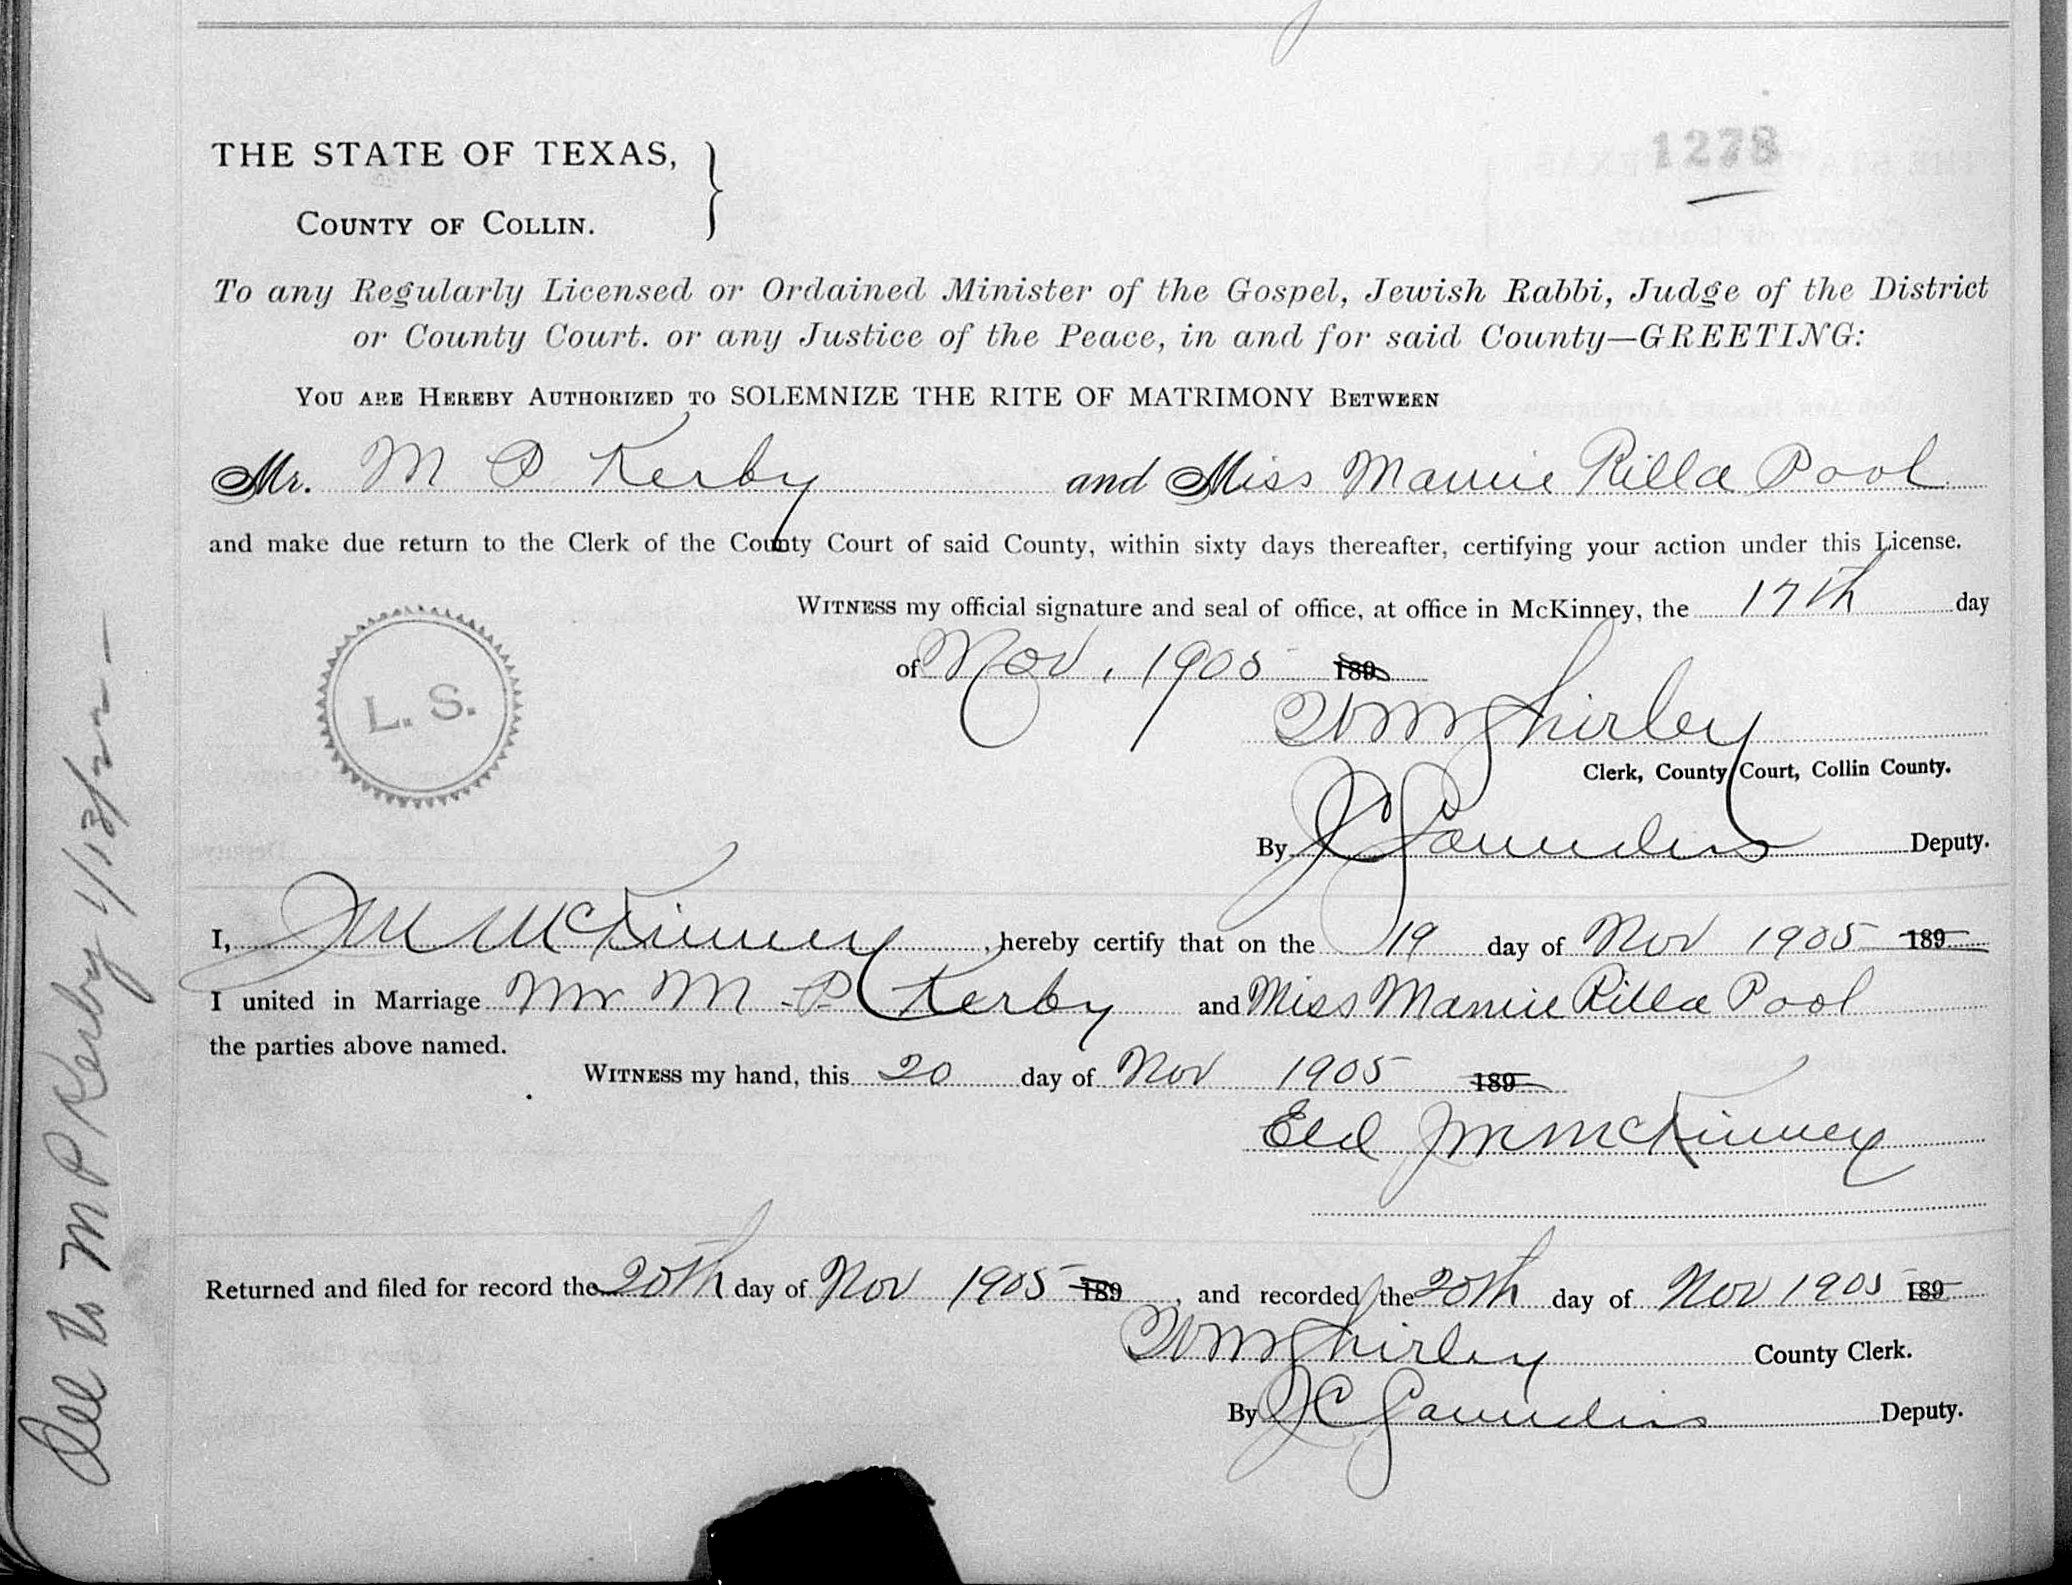 1278
THE STATE OF TEXAS,
COUNTY OF COLLIN.
To any Regularly Licensed or Ordained Minister of the Gospel, Jewish Rabbi, Judge of the District
or County Court. or any Justice of the Peace, in and for said County—GREETING:
YOU ARE HEREBY AUTHORIZED TO SOLEMNIZE THE RITE OF MATRIMONY BETWEEN
Mr. M P Kerby and Miss Mamie Rilla Pool
and make due return to the Clerk of the County Court of said County, within sixty days thereafter, certifying your action under this License.
WITNESS my official signature and seal of office, at office in McKinney, the 17th day
of Nov, 1905 189
L. S.
Wm Shirley
Clerk, County Court, Collin County.
By J C Saunders Deputy.
I, J M McKinney, hereby certify that on the 19 day of Nov 1905 189
I united in Marriage Mr M P Kerby and Miss Mamie Rilla Pool
the parties above named.
WITNESS my hand, this 20 day of Nov 1905 189
Eld J M McKinney
Returned and filed for record the 20th day of Nov 1905 189, and recorded the 20th day of Nov 1905 189
Wm Shirley County Clerk.
By J C Saunders Deputy.
Del to M P Kerby